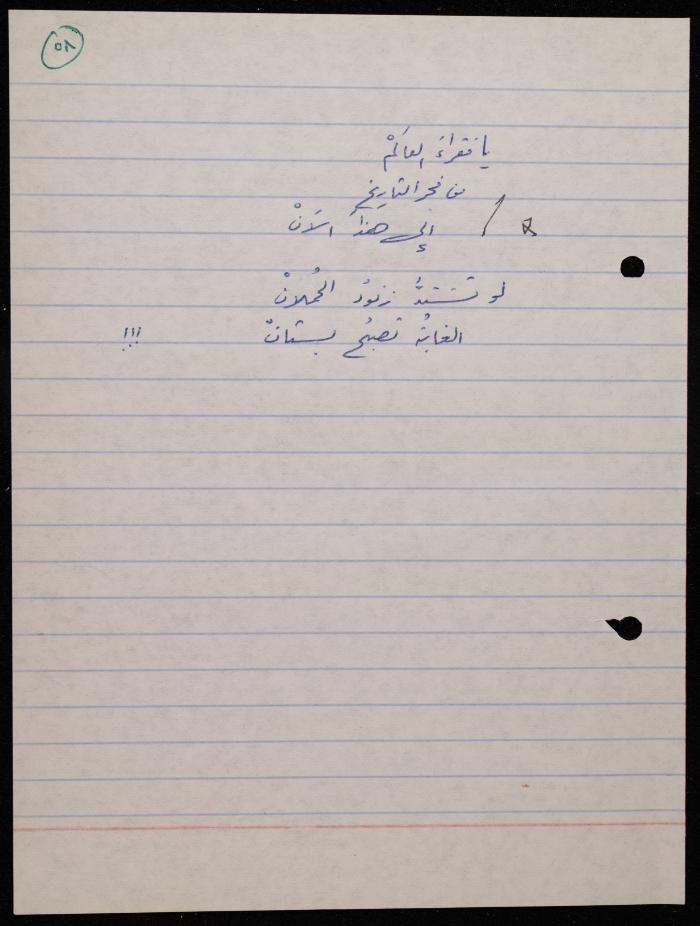 يا فقراءَ العالمْ
من فجر التاريخ
إلى هذا الآنْ
لو تَشتدُّ زنودُ الحُملانْ
الغابةُ تصبحُ بستانْ !!!